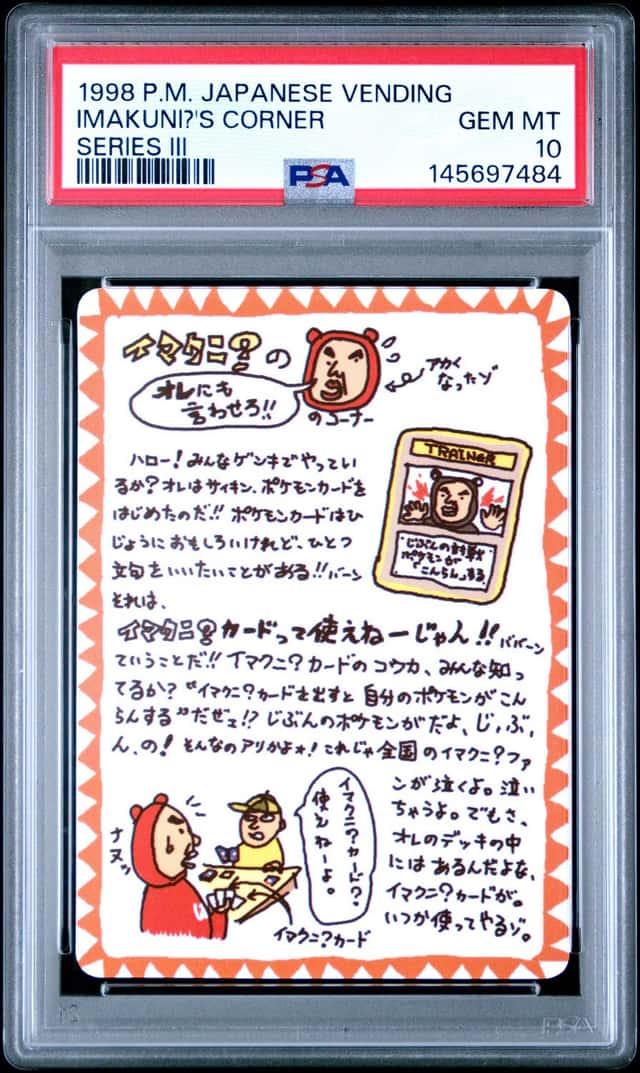 1998 P.M. JAPANESE VENDING
IMAKUNI?'S CORNER GEM MT
SERIES III 10
PSA 145697484
イマクニ?の
オレにも
言わせろ!!
のコーナー
アカく
なったゾ
ハロー!みんなゲンキでやってい
るか?オレはサイキン、ポケモンカードを
はじめたのだ!!ポケモンカードはひ
じょうにおもしろいけれど、ひとつ
文句をいいたいことがある!!バーン
それは、
TRAINER
じぶんの対戦
ポケモンが
「こんらん」する
イマクニ?カードって使えねーじゃん!!ババーン
ていうことだ!!イマクニ?カードのコウカ、みんな知っ
てるか?“イマクニ?カードを出すと自分のポケモンがこん
らんする”だぜェ!?じぶんのポケモンがだよ、じ,ぶ,
ん、の!そんなのアリかよォ!これじゃ全国のイマクニ?ファ
ンが泣くよ。泣い
ちゃうよ。でもさ、
オレのデッキの中
にはあるんだよな、
イマクニ?カードが。
いつか使ってやるゾ。
イマクニ?カード?
使えねーよ。
ナヌッ
イマクニ?カード
PSA